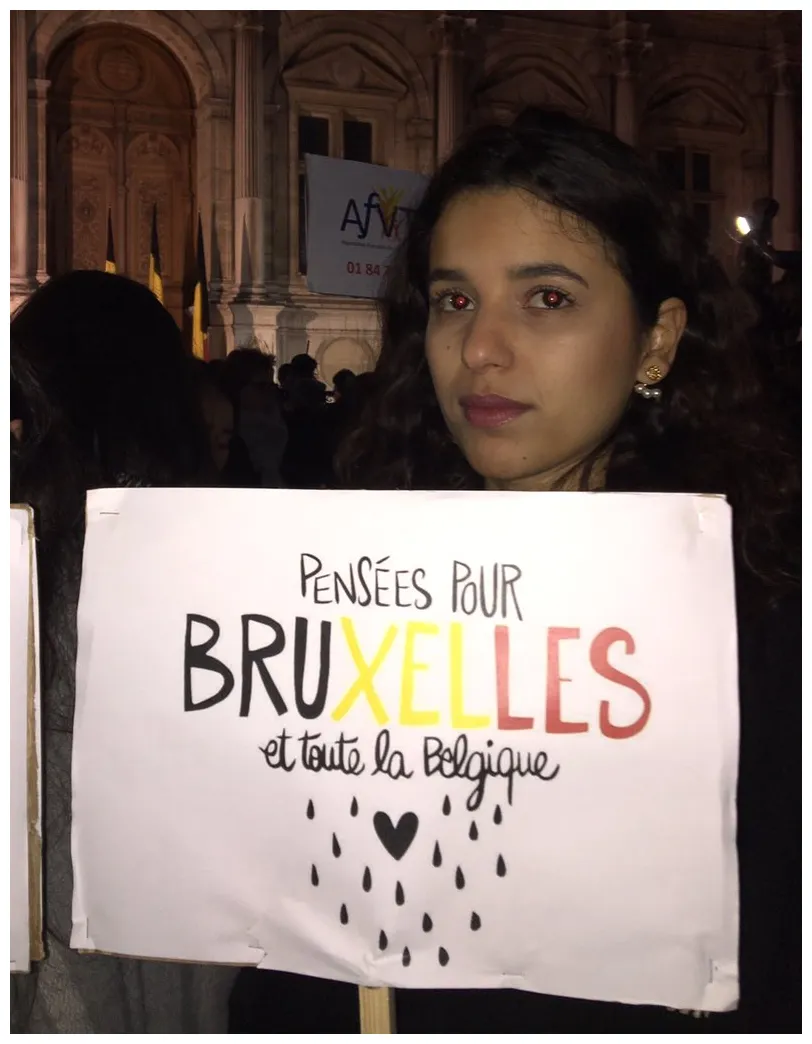 AfVT
01 84
PENSÉES POUR
BRUXELLES
et toute la Belgique